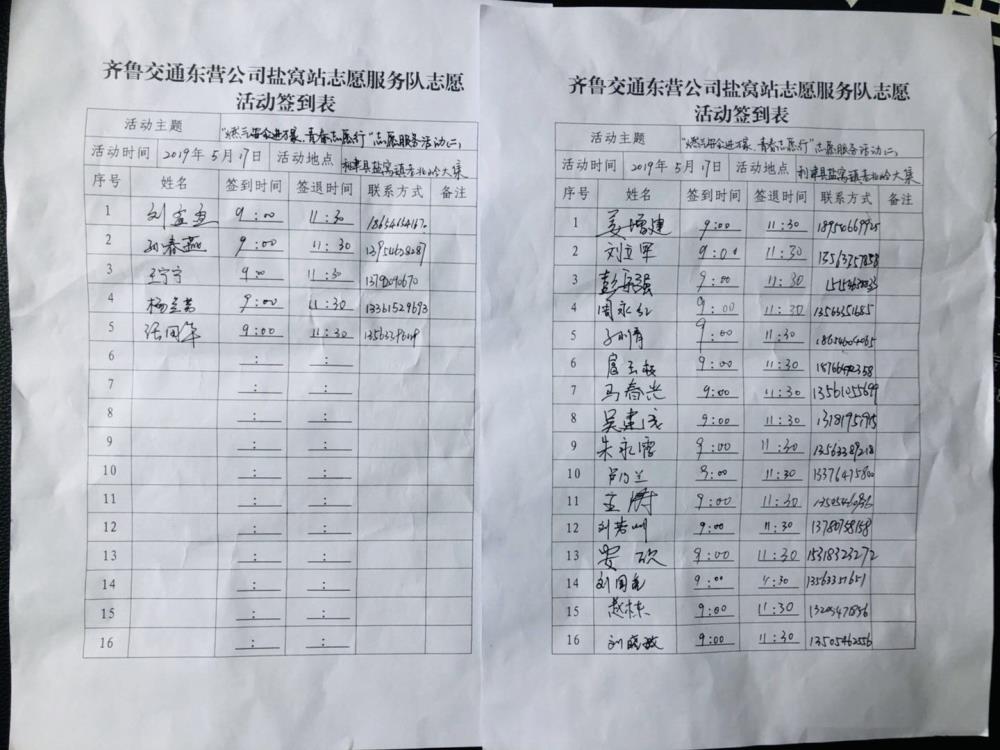 齐鲁交通东营公司盐窝站志愿服务队志愿
活动签到表
活动主题 志愿服务活动(二)
活动时间 2019年5月17日 活动地点 利津县盐窝镇 大集
序号 姓名 签到时间 签退时间 联系方式 备注
1 9:00 11:30
2 孙春燕 9:00 11:30
3 王宁宁 9:00 11:30
4 9:00 11:30 13361529693
5 张国华 9:00 11:30
6 : :
7 : :
8 : :
9 : :
10 : :
11 : :
12 : :
13 : :
14 : :
15 : :
16 : :
齐鲁交通东营公司盐窝站志愿服务队志愿
活动签到表
活动主题 青春志愿行"志愿服务活动(二)
活动时间 2019年5月17日 活动地点 利津县盐窝镇 大集
序号 姓名 签到时间 签退时间 联系方式 备注
1 姜增建 9:00 11:30
2 刘立军 9:00 11:30 13563357858
3 9:00 11:30
4 周永红 9:00 11:30 13563351685
5 9:00 11:30 18654604065
6 9:00 11:30
7 马春兴 9:00 11:30 13561055699
8 吴建成 9:00 11:30 13181957915
9 9:00 11:30 13563389218
10 9:00 11:30 13376475800
11 王涛 9:00 11:30
12 刘若川 9:00 11:30 13780758158
13 安欣 9:00 11:30 15318323272
14 9:00 11:30 13563351651
15 赵栋 9:00 11:30
16 刘晓敏 9:00 11:30 13505462556